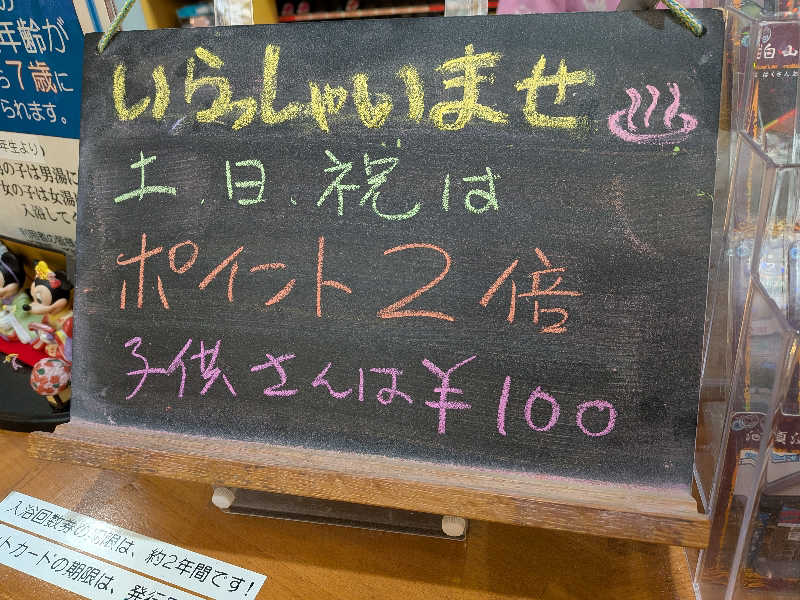 いらっしゃいませ
土、日、祝は
ポイント2倍
子供さんは¥100
年齢が
7歳に
られます。
年生より)
の子は男湯に
女の子は女湯
入浴して
入浴回数券の期限は、約2年間です!
トカードの期限は、発行
白山